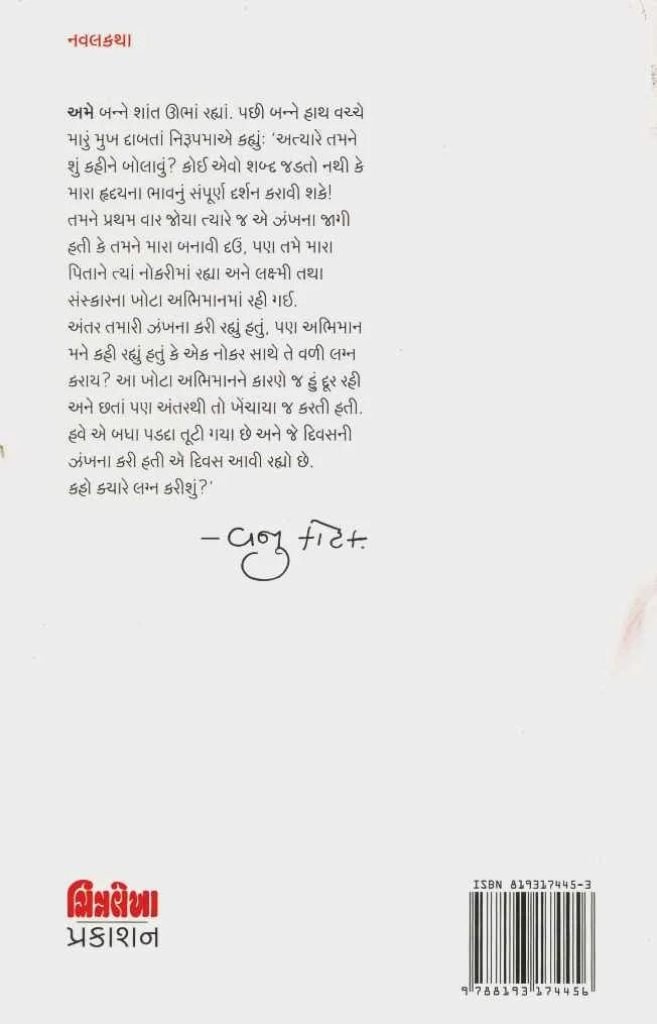 નવલકથા
અમે બન્ને શાંત ઊભાં રહ્યાં. પછી બન્ને હાથ વચ્ચે
મારું મુખ દાબતાં નિરૂપમાએ કહ્યું: ‘અત્યારે તમને
શું કહીને બોલાવું? કોઈ એવો શબ્દ જડતો નથી કે
મારા હૃદયના ભાવનું સંપૂર્ણ દર્શન કરાવી શકે!
તમને પ્રથમ વાર જોયા ત્યારે જ એ ઝંખના જાગી
હતી કે તમને મારા બનાવી દઉં, પણ તમે મારા
પિતાને ત્યાં નોકરીમાં રહ્યા અને લક્ષ્મી તથા
સંસ્કારના ખોટા અભિમાનમાં રહી ગઈ.
અંતર તમારી ઝંખના કરી રહ્યું હતું, પણ અભિમાન
મને કહી રહ્યું હતું કે એક નોકર સાથે તે વળી લગ્ન
કરાય? આ ખોટા અભિમાનને કારણે જ હું દૂર રહી
અને છતાં પણ અંતરથી તો ખેંચાયા જ કરતી હતી.
હવે એ બધા પડદા તૂટી ગયા છે અને જે દિવસની
ઝંખના કરી હતી એ દિવસ આવી રહ્યો છે.
કહો ક્યારે લગ્ન કરીશું?’
– વજુ કોટક
ચિત્રલેખા
પ્રકાશન
ISBN 819317445-3
9 788193 174456